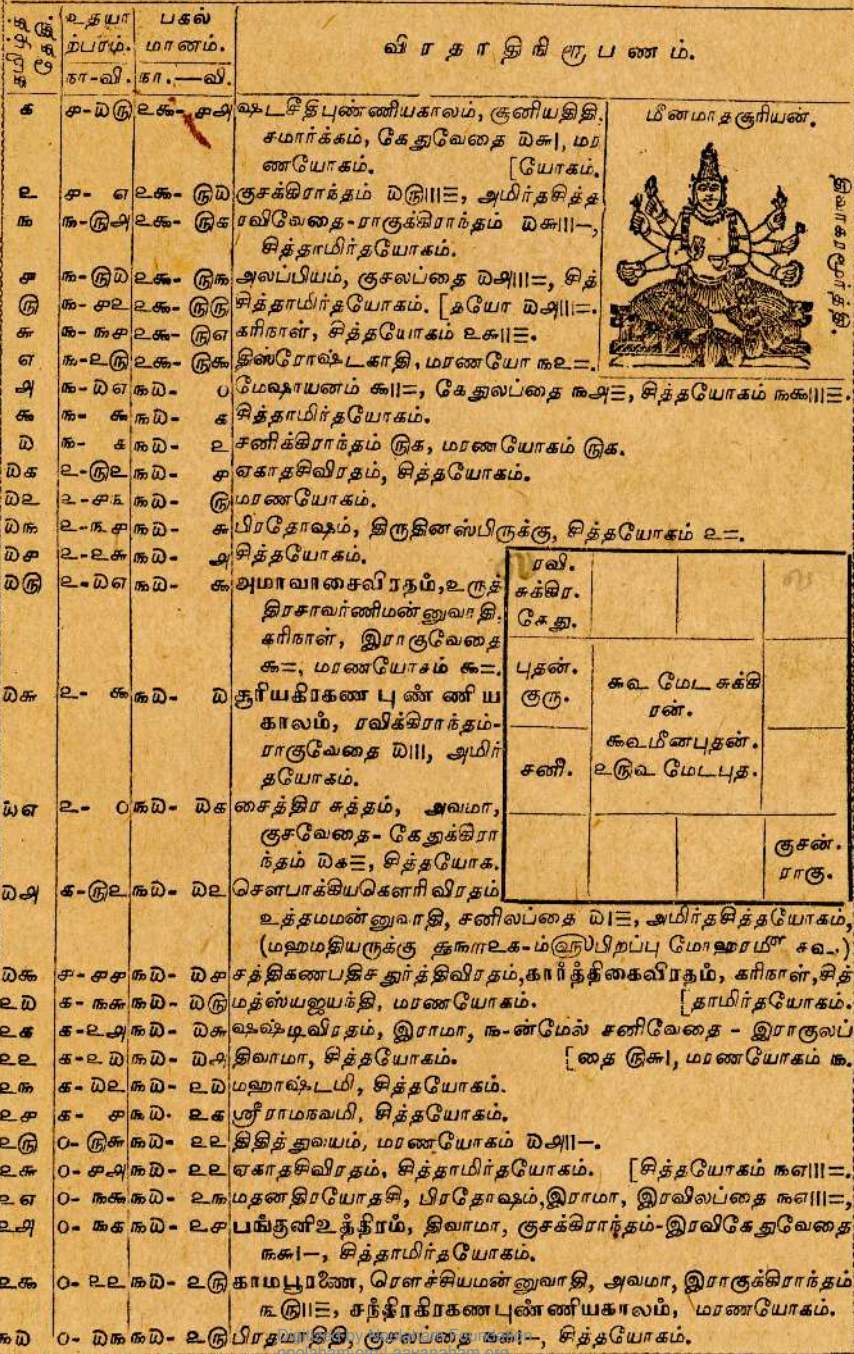 தமிழ்த் தேதி.
உதயாற்பரம். பகல்மானம். விரதாதிநிரூபணம்.
நா-வி. நா.—வி.
க ௪-ıD௫ ௨௯-௪௮ ஷடசீதிபுண்ணியகாலம், சூனியதிதி,
சமார்க்கம், கேதுவேதை ௰௬|, மர
ணயோகம். [யோகம்.
மீனமாதசூரியன்.
திவாகரமூர்த்தி.
௨ ௪- ௭ ௨௯- ௫௰ குசக்கிராந்தம் ௰௫|||☰, அமிர்தசித்த
௩ ௩-௫௮ ௨௯- ௫௧ ரவிவேதை-ராகுக்கிராந்தம் ௰௬||—,
சித்தாமிர்தயோகம்.
௪ ௩-௫௰ ௨௯- ௫௩ அலப்பியம், குசலப்தை ௰௮|||=, சித்
௫ ௩- ௪௨ ௨௯- ௫௫ சித்தாமிர்தயோகம். [தயோ ௰௮|||=.
௬ ௩- ௩௪ ௨௯- ௫௭ கரிநாள், சித்தயோகம் ௨௬||☰.
௭ ௩-௨௫ ௨௯- ௫௯ திஸ்ரோஷ்டகாதி, மரணயோ ௩௨=.
௮ ௩-௰௭ ௩௰- ௦ மேஷாயனம் ௯||=, கேதுலப்தை ௩௮☰, சித்தயோகம் ௩௯|||☰.
௯ ௩- ௯ ௩௰- ௧ சித்தாமிர்தயோகம்.
௰ ௩- ௧ ௩௰- ௨ சனிக்கிராந்தம் ௫௧, மரணயோகம் ௫௧.
௰௧ ௨-௫௨ ௩௰- ௪ ஏகாதசிவிரதம், சித்தயோகம்.
௰௨ ௨-௪௩ ௩௰- ௫ மரணயோகம்.
௰௩ ௨-௩௪ ௩௰- ௬ பிரதோஷம், திருதினஸ்பிருக்கு, சித்தயோகம் ௨=.
௰௪ ௨-௨௬ ௩௰- ௮ சித்தயோகம்.
௰௫ ௨-௰௭ ௩௰- ௯ அமாவாசைவிரதம், உருத்
திரசாவர்ணிமன்னுவாதி,
கரிநாள், இராகுவேதை
௯=, மரணயோகம் ௯=.
௰௬ ௨- ௯ ௩௰- ௰ சூரியகிரகண புண்ணிய
காலம், ரவிக்கிராந்தம்-
ராகுவேதை ௰|||, அமிர்
தயோகம்.
௰௭ ௨- ௦ ௩௰- ௰௧ சைத்திர சுத்தம், அவமா,
குசவேதை- கேதுக்கிரா
ந்தம் ௰௧☰, சித்தயோக.
ரவி.
சுக்கிர.
கேது.
புதன்.
குரு.
சனி.
௯௳ மேட சுக்கி
ரன்.
௯௳மீனபுதன்.
௨௫௳ மேடபுத.
குசன்.
ராகு.
௰௮ ௧-௫௨ ௩௰- ௰௨ சௌபாக்கியகௌரி விரதம்
உத்தமமன்னுவாதி, சனிலப்தை ௰|☰, அமிர்தசித்தயோகம்,
(மஹமதியருக்கு ௲௩௱௨௧-ம்௵பிறப்பு மோஹரமீ௴ ௧௳.)
௰௯ ௧-௪௪ ௩௰- ௰௪ சத்திகணபதிசதுர்த்திவிரதம், கார்த்திகைவிரதம், கரிநாள், சித்
௨௰ ௧- ௩௬ ௩௰- ௰௫ மத்ஸ்யஜயந்தி, மரணயோகம். [தாமிர்தயோகம்.
௨௧ ௧-௨௮ ௩௰- ௰௬ ஷஷ்டிவிரதம், இராமா, ௩-ன்மேல் சனிவேதை - இராகுலப்
௨௨ ௧-௨௰ ௩௰- ௰௮ திவாமா, சித்தயோகம். [தை ௫௬|, மரணயோகம் ௩.
௨௩ ௧- ௰௨ ௩௰- ௨௰ மஹாஷ்டமி, சித்தயோகம்.
௨௪ ௧- ௪ ௩௰- ௨௧ ஸ்ரீராமநவமி, சித்தயோகம்.
௨௫ ௦- ௫௬ ௩௰- ௨௨ திதித்துவயம், மரணயோகம் ௰௮||—.
௨௬ ௦- ௪௮ ௩௰- ௨௨ ஏகாதசிவிரதம், சித்தாமிர்தயோகம். [சித்தயோகம் ௩௭|||=.
௨௭ ௦- ௩௯ ௩௰- ௨௩ மதனதிரயோதசி, பிரதோஷம், இராமா, இரவிலப்தை ௩௭|||=,
௨௮ ௦- ௩௧ ௩௰- ௨௪ பங்குனிஉத்திரம், திவாமா, குசக்கிராந்தம்-இரவிகேதுவேதை
௩௬|—, சித்தாமிர்தயோகம்.
௨௯ ௦- ௨௨ ௩௰- ௨௫ காமபூரணை, ரௌச்சியமன்னுவாதி, அவமா, இராகுக்கிராந்தம்
௩௫||☰, சந்திரகிரகணபுண்ணியகாலம், மரணயோகம்.
௩௰ ௦- ௰௩ ௩௰- ௨௫ பிரதமாதிதி, குசலப்தை, சித்தயோகம்.
Digitized by Noolaham Foundation.
noolaham.org | aavanaham.org